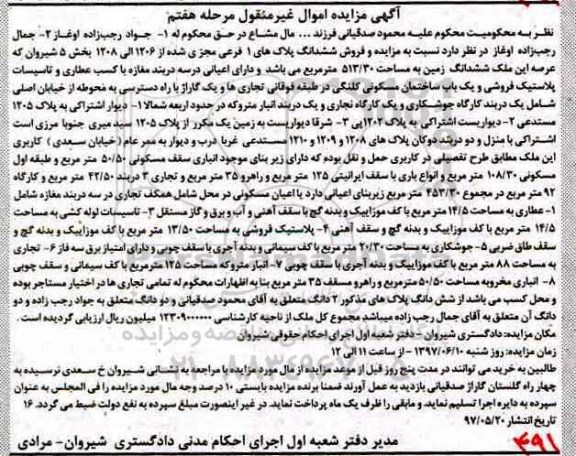 ۴۹۱
آگهی مزایده اموال غیرمنقول مرحله هفتم
نظر به محکومیت محکوم علیه محمود صدقیانی فرزند ... مال مشاع در حق محکوم له ۱- جواد رجب‌زاده اوغاز ۲- جمال
رجب‌زاده اوغاز در نظر دارد نسبت به مزایده و فروش ششدانگ پلاک های ۱ فرعی مجزی شده از ۱۲۰۶ الی ۱۲۰۸ بخش ۵ شیروان که
عرصه این ملک ششدانگ زمین به مساحت ۵۱۳/۳۰ مترمربع می باشد و دارای اعیانی درسه دربند مغازه با کسب عطاری و تاسیسات
پلاستیک فروشی و یک باب ساختمان مسکونی کلنگی در طبقه فوقانی تجاری ها و یک گاراژ با راه دسترسی به محوطه از خیابان اصلی
شامل یک دربند کارگاه جوشکاری و یک کارگاه نجاری و یک دربند انبار متروکه در حدود اربعه شمالا ۱- دیوار اشتراکی به پلاک ۱۲۰۵
مستدعی ۲- دیواریست اشتراکی به پلاک ۱۲۰۲پی ۳- شرقا دیواریست به زمین یک مکرر از پلاک ۱۲۰۵ سید میری جنوبا مرزی است
اشتراکی با منزل و دو دربند دوکان پلاک های ۱۲۰۸ و ۱۲۰۹ و ۱۲۱۰ مستدعی غربا درب و دیوار به ممر عام (خیابان سعدی ) کاربری
این ملک مطابق طرح تفصیلی در کاربری حمل و نقل بوده که دارای زیر بنای موجود انباری سقف مسکونی ۵۰/۵۰ متر مربع و طبقه اول
مسکونی ۱۰۸/۳۰ متر مربع و انواع باری با سقف ایرانیتی ۱۲۵ متر مربع و راهرو ۳۵ متر مربع و تجاری ۳ دربند ۴۲/۵۰ متر مربع و کارگاه
۹۲ متر مربع در مجموع ۴۵۳/۳۰ متر مربع زیربنای اعیانی دارد با اعیان مسکونی در محل شامل همکف تجاری در سه دربند مغازه شامل
۱- عطاری به مساحت ۱۴/۵ متر مربع با کف موزاییک و بدنه گچ با سقف آهنی و آب و برق و گاز مستقل ۳- تاسیسات لوله کشی به مساحت
۱۴/۵ متر مربع با کف موزاییک و بدنه گچ و سقف آهنی ۴- پلاستیک فروشی به مساحت ۱۳/۵۰ متر مربع با کف موزاییک و بدنه گچ و
سقف طاق ضربی ۵- جوشکاری به مساحت ۲۰/۳۰ متر مربع با کف سیمانی و بدنه آجری با سقف چوبی و دارای امتیاز برق سه فاز ۶- تجاری
به مساحت ۸۸ متر مربع با کف موزاییک و بدنه آجری با سقف چوبی ۷- انبار متروکه مساحت ۱۲۵ مترمربع با کف سیمانی و سقف چوبی
۸- انباری مخروبه مساحت ۵۰/۵۰ مترمربع و راهرو مسقف ۳۵ متر مربع بنا به اظهارات محکوم له تمامی تجاری ها در اختیار مستاجر بوده
و محل کسب می باشد از شش دانگ پلاک های مذکور ۲ دانگ متعلق به آقای محمود صدقیانی و دو دانگ متعلق به جواد رجب زاده و دو
دانگ آن متعلق به آقای جمال رجب زاده میباشد مجموع کل ملک از ناحیه کارشناسی ۱۲۳۰۹۰۰۰۰۰۰ میلیون ریال ارزیابی گردیده است.
مکان مزایده: دادگستری شیروان - دفتر شعبه اول اجرای احکام حقوقی شیروان
زمان مزایده: روز شنبه ۱۳۹۷/۰۶/۱۰ - از ساعت ۱۱ الی ۱۲
طالبین به خرید می توانند در مدت پنج روز قبل از موعد مزایده از مال مورد مزایده با مراجعه به نشانی شیروان خ سعدی نرسیده به
چهار راه گلستان گاراژ صدقیانی بازدید به عمل آورند ضمنا برنده مزایده بایستی ۱۰ درصد وجه مال مورد مزایده را فی المجلس به عنوان
سپرده به دایره اجرا تسلیم نماید. و مابقی را ظرف یک ماه پرداخت نماید. در غیر اینصورت مبلغ سپرده به نفع دولت ضبط می گردد. ۱۶
تاریخ انتشار ۹۷/۰۵/۲۰
مدیر دفتر شعبه اول اجرای احکام مدنی دادگستری شیروان- مرادی
۴۹۱